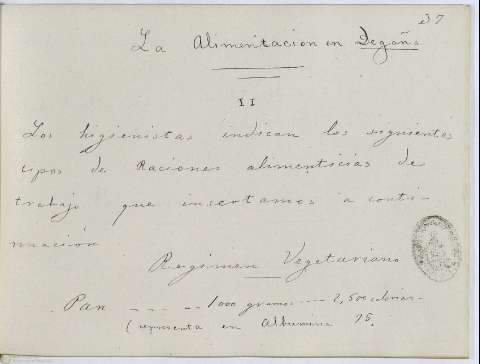 37
La Alimentacion en Degaña
II
Los higienistas indican los siguientes
tipos de Raciones alimenticias de
trabajo que insertamos a conti-
nuación
Regimen Vegetariano
Pan - - - 1000 gramos - - - 2,500 calorias -
(representa en Albumina 75.